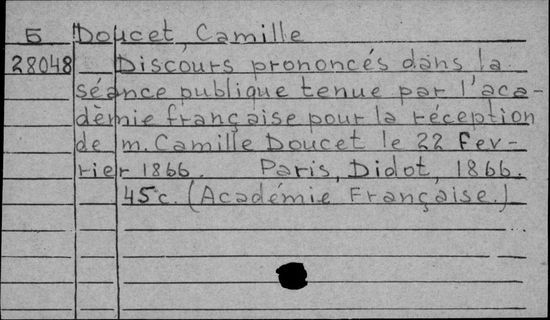 Б Doucet, Camille
28048 Discours prononcés dans la
séance publique tenue par l'aca-
dèmie française pour la réception
de m. Camille Doucet le 22 Fev-
rier 1866. Paris, Didot, 1866.
45 c. (Académie Française.)